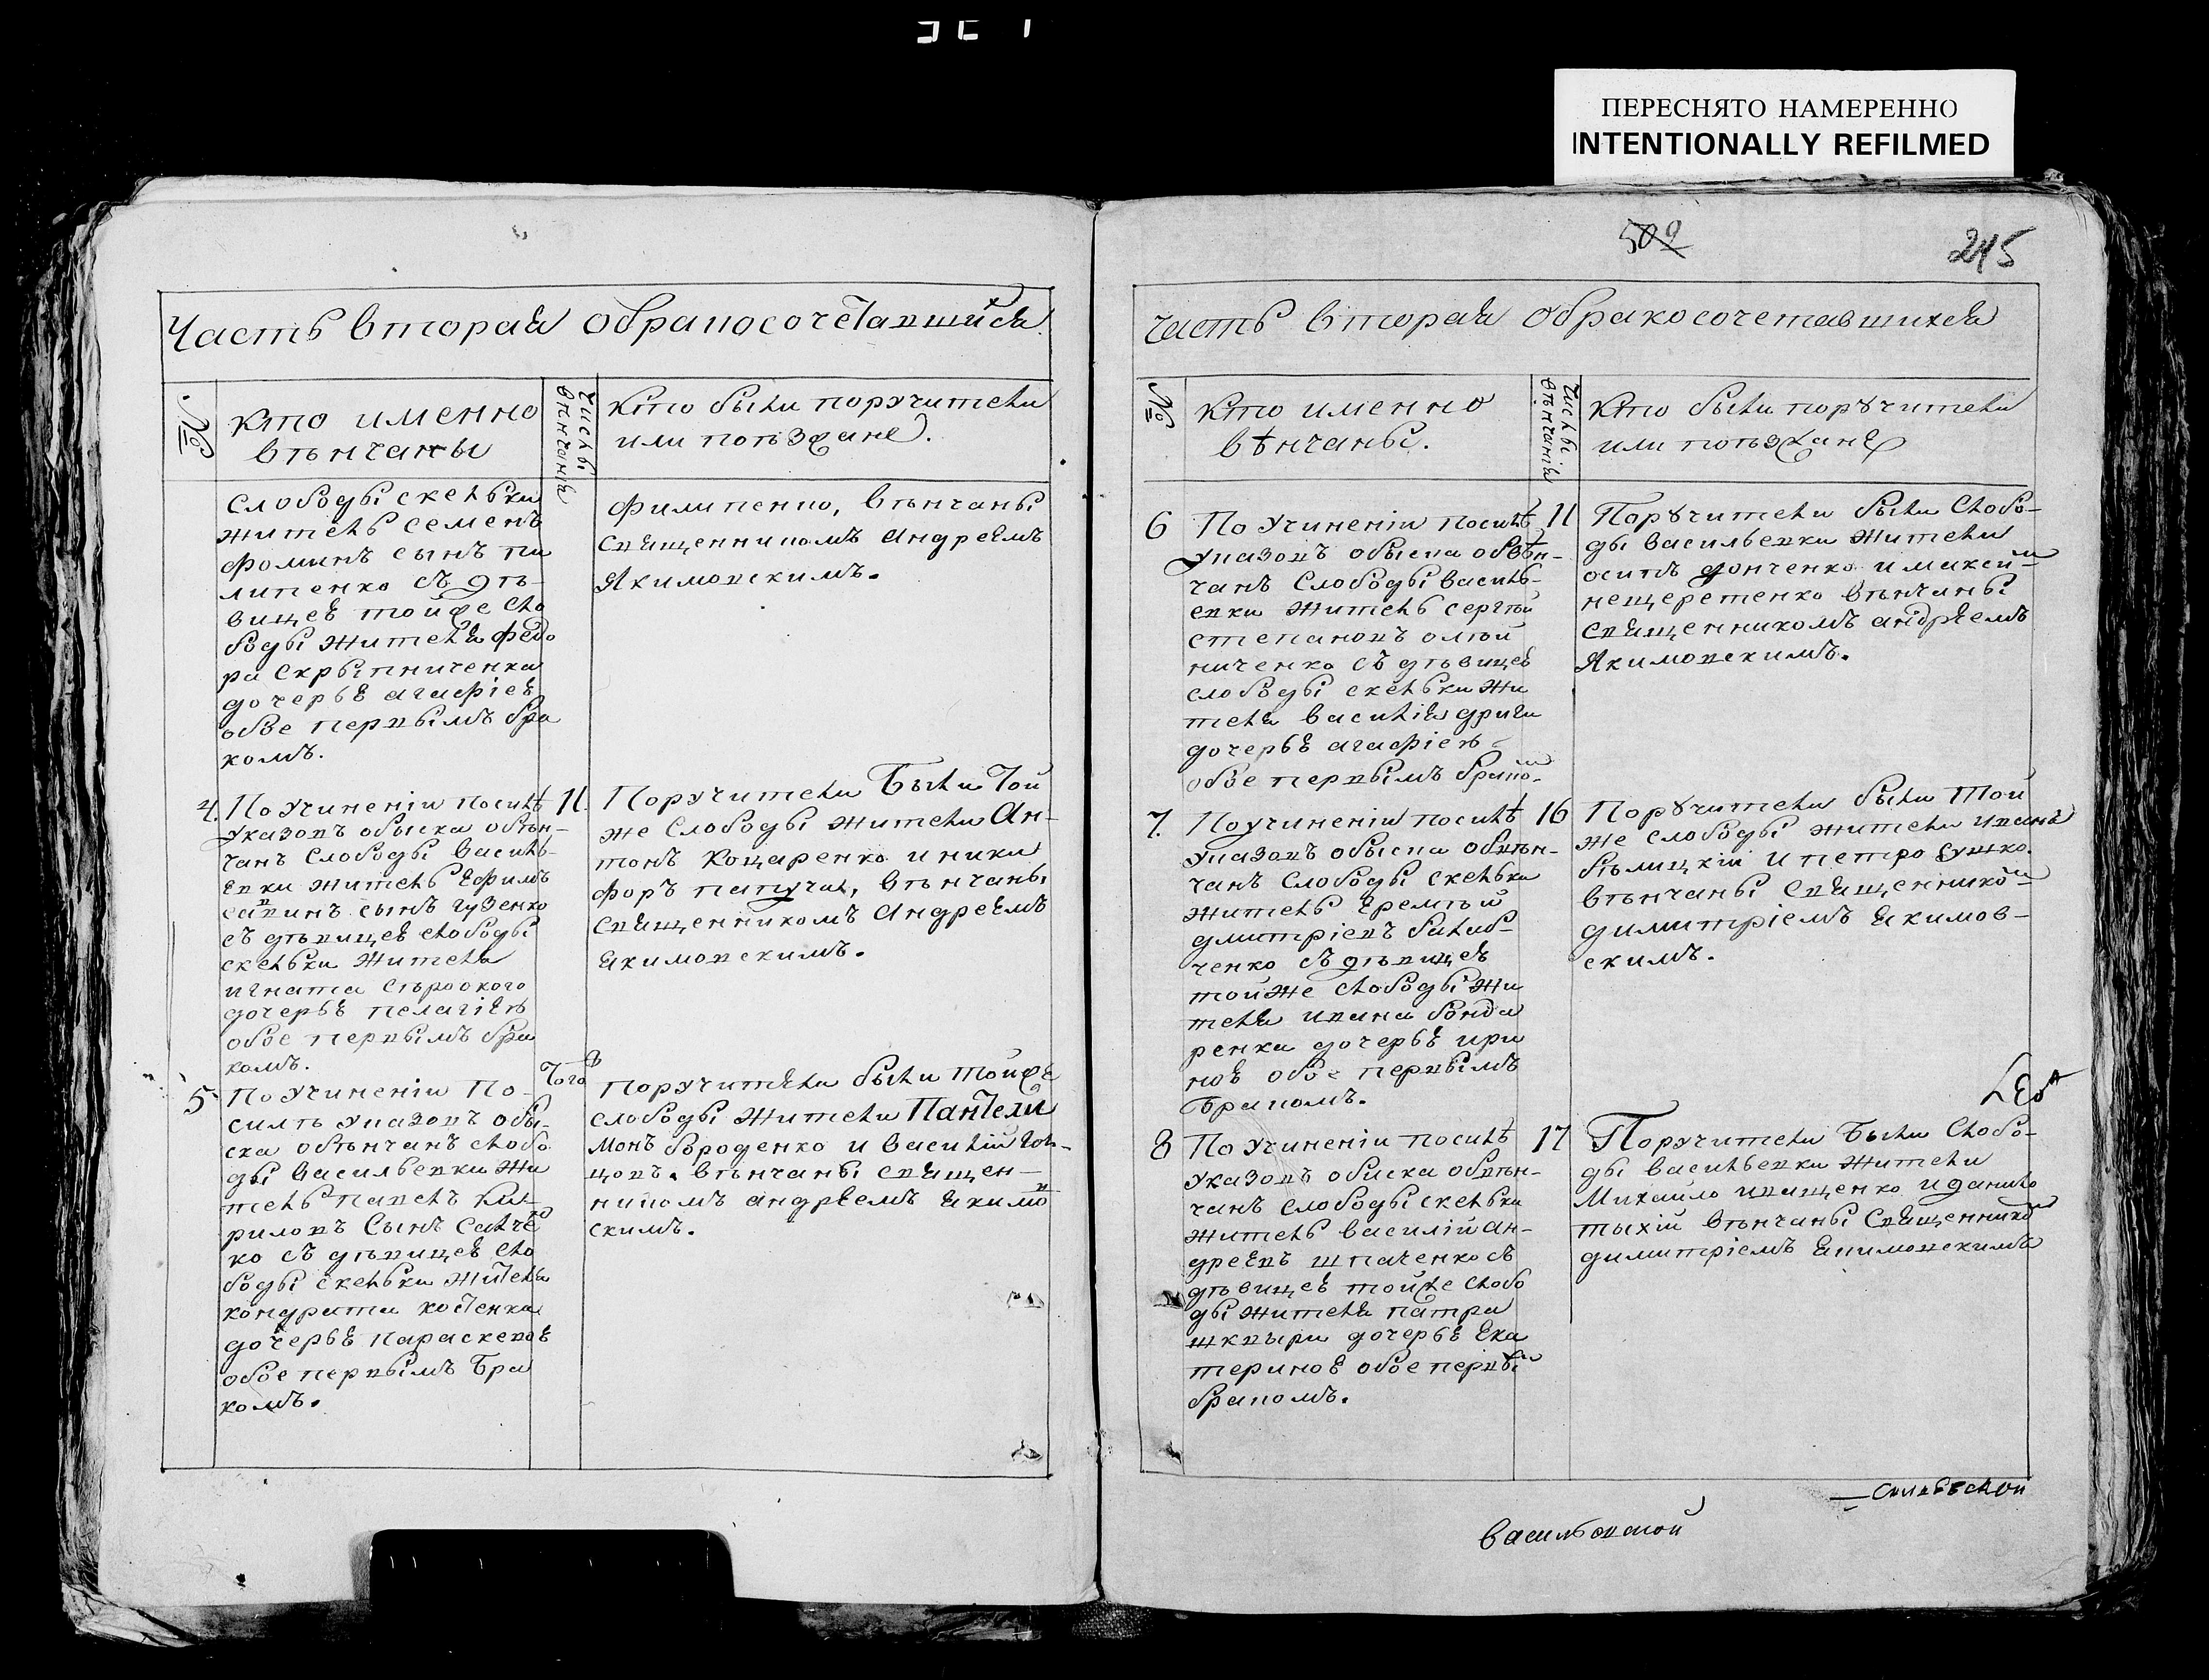 ПЕРЕСНЯТО НАМЕРЕННО
INTENTIONALLY REFILMED
509
245
Часть вторая обракосочетавшихся
№
кто именно
вѣнчаны
Числы
вѣнчанія
Кто были поручители
или поѣзжане.
слободы скельки
житель семенъ
фоминъ сынъ пи
липенко съ дѣ-
вицею тойже сло
боды жителя федо
ра скрыпниченка
дочерью агафіею
обое первымъ бра
комъ.
филипенко, вѣнчаны
священникомъ андреемъ
Якимовскимъ.
4.
По учиненіи посилѣ
указовъ обыска обвѣн-
чанъ слободы василь-
евки житель ефимъ
савинъ сынъ гузенко
съ дѣвицею слободы
скельки жителя
игната сѣроокого
дочерью пелагіею
обое первымъ бра
комъ.
11.
Поручители Были Той
же слободы жители Ан-
тонъ Коцаренко и ники
форъ папуча, вѣнчаны
священникомъ андреемъ
якимовскимъ.
5
По учиненіи по-
силѣ указовъ обы-
ска обвѣнчанъ слобо
ды васильевки жи
тель павелъ Ки-
риловъ сынъ
ко съ дѣвицею сло
боды скельки жителя
кондрата костенка
дочерью параскевою
обое первымъ Бра
комъ.
Того
поручители были тойже
слободы жители Пантели
монъ бороденко и василій
вѣнчаны священ-
никомъ андреемъ якимов
скимъ.
часть вторая обракосочетавшихся
№
Кто именно
вѣнчаны.
Числы
вѣнчанія
Кто были поручители
или поѣзжане
6
По учиненіи посилѣ
указовъ обыска обвѣн-
чанъ слободы василь-
евки житель сергѣй
степановъ олѣй
ниченко съ дѣвицею
слободы скельки жи
теля василія дриги
дочерью агафіею
обое первымъ браком
11
Поручители были слобо-
ды васильевки жители
осипъ донченко и максим
нещеретенко вѣнчаны
священникомъ андреемъ
Якимовскимъ.
7.
По учиненіи посилѣ
указовъ обыска обвѣн-
чанъ слободы скельки
житель еремѣй
дмитріевъ балаб-
ченко съ дѣвицею
тойже слободы жи
теля ивана бонда
ренка дочерью ири
ною обое первымъ
Бракомъ.
16
Поручители были Той
же слободы жители иванъ
бѣлицкій и петро сушко.
вѣнчаны священником
димитріемъ якимов-
скимъ.
8
По учиненіи посилѣ
указовъ обиска обвѣн-
чанъ слободы скельки
житель василій ан-
дреевъ шпаченко съ
дѣвицею тойже слобо
ды жителя патра
шквыри дочерью ека
териною обое первым
бракомъ.
17
Поручители Были слобо-
ды васильевки жители
Михайло иващенко и данило
тыхій вѣнчаны священником
димитріемъ якимовскимъ
васильевской